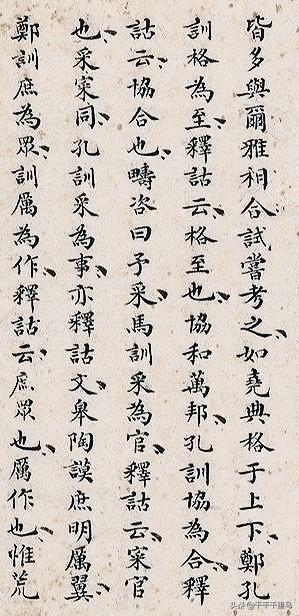 皆多與爾雅相合試嘗考之如堯典格于上下鄭孔
訓格為至釋詁云格至也協和萬邦孔訓協為合釋
詁云協合也疇咨曰予采馬訓采為官釋詁云寀官
也采寀同孔訓采為事亦釋詁文皋陶謨庶明厲翼
鄭訓庶為眾訓厲為作釋詁云庶眾也厲作也惟荒
头条@千千千里马